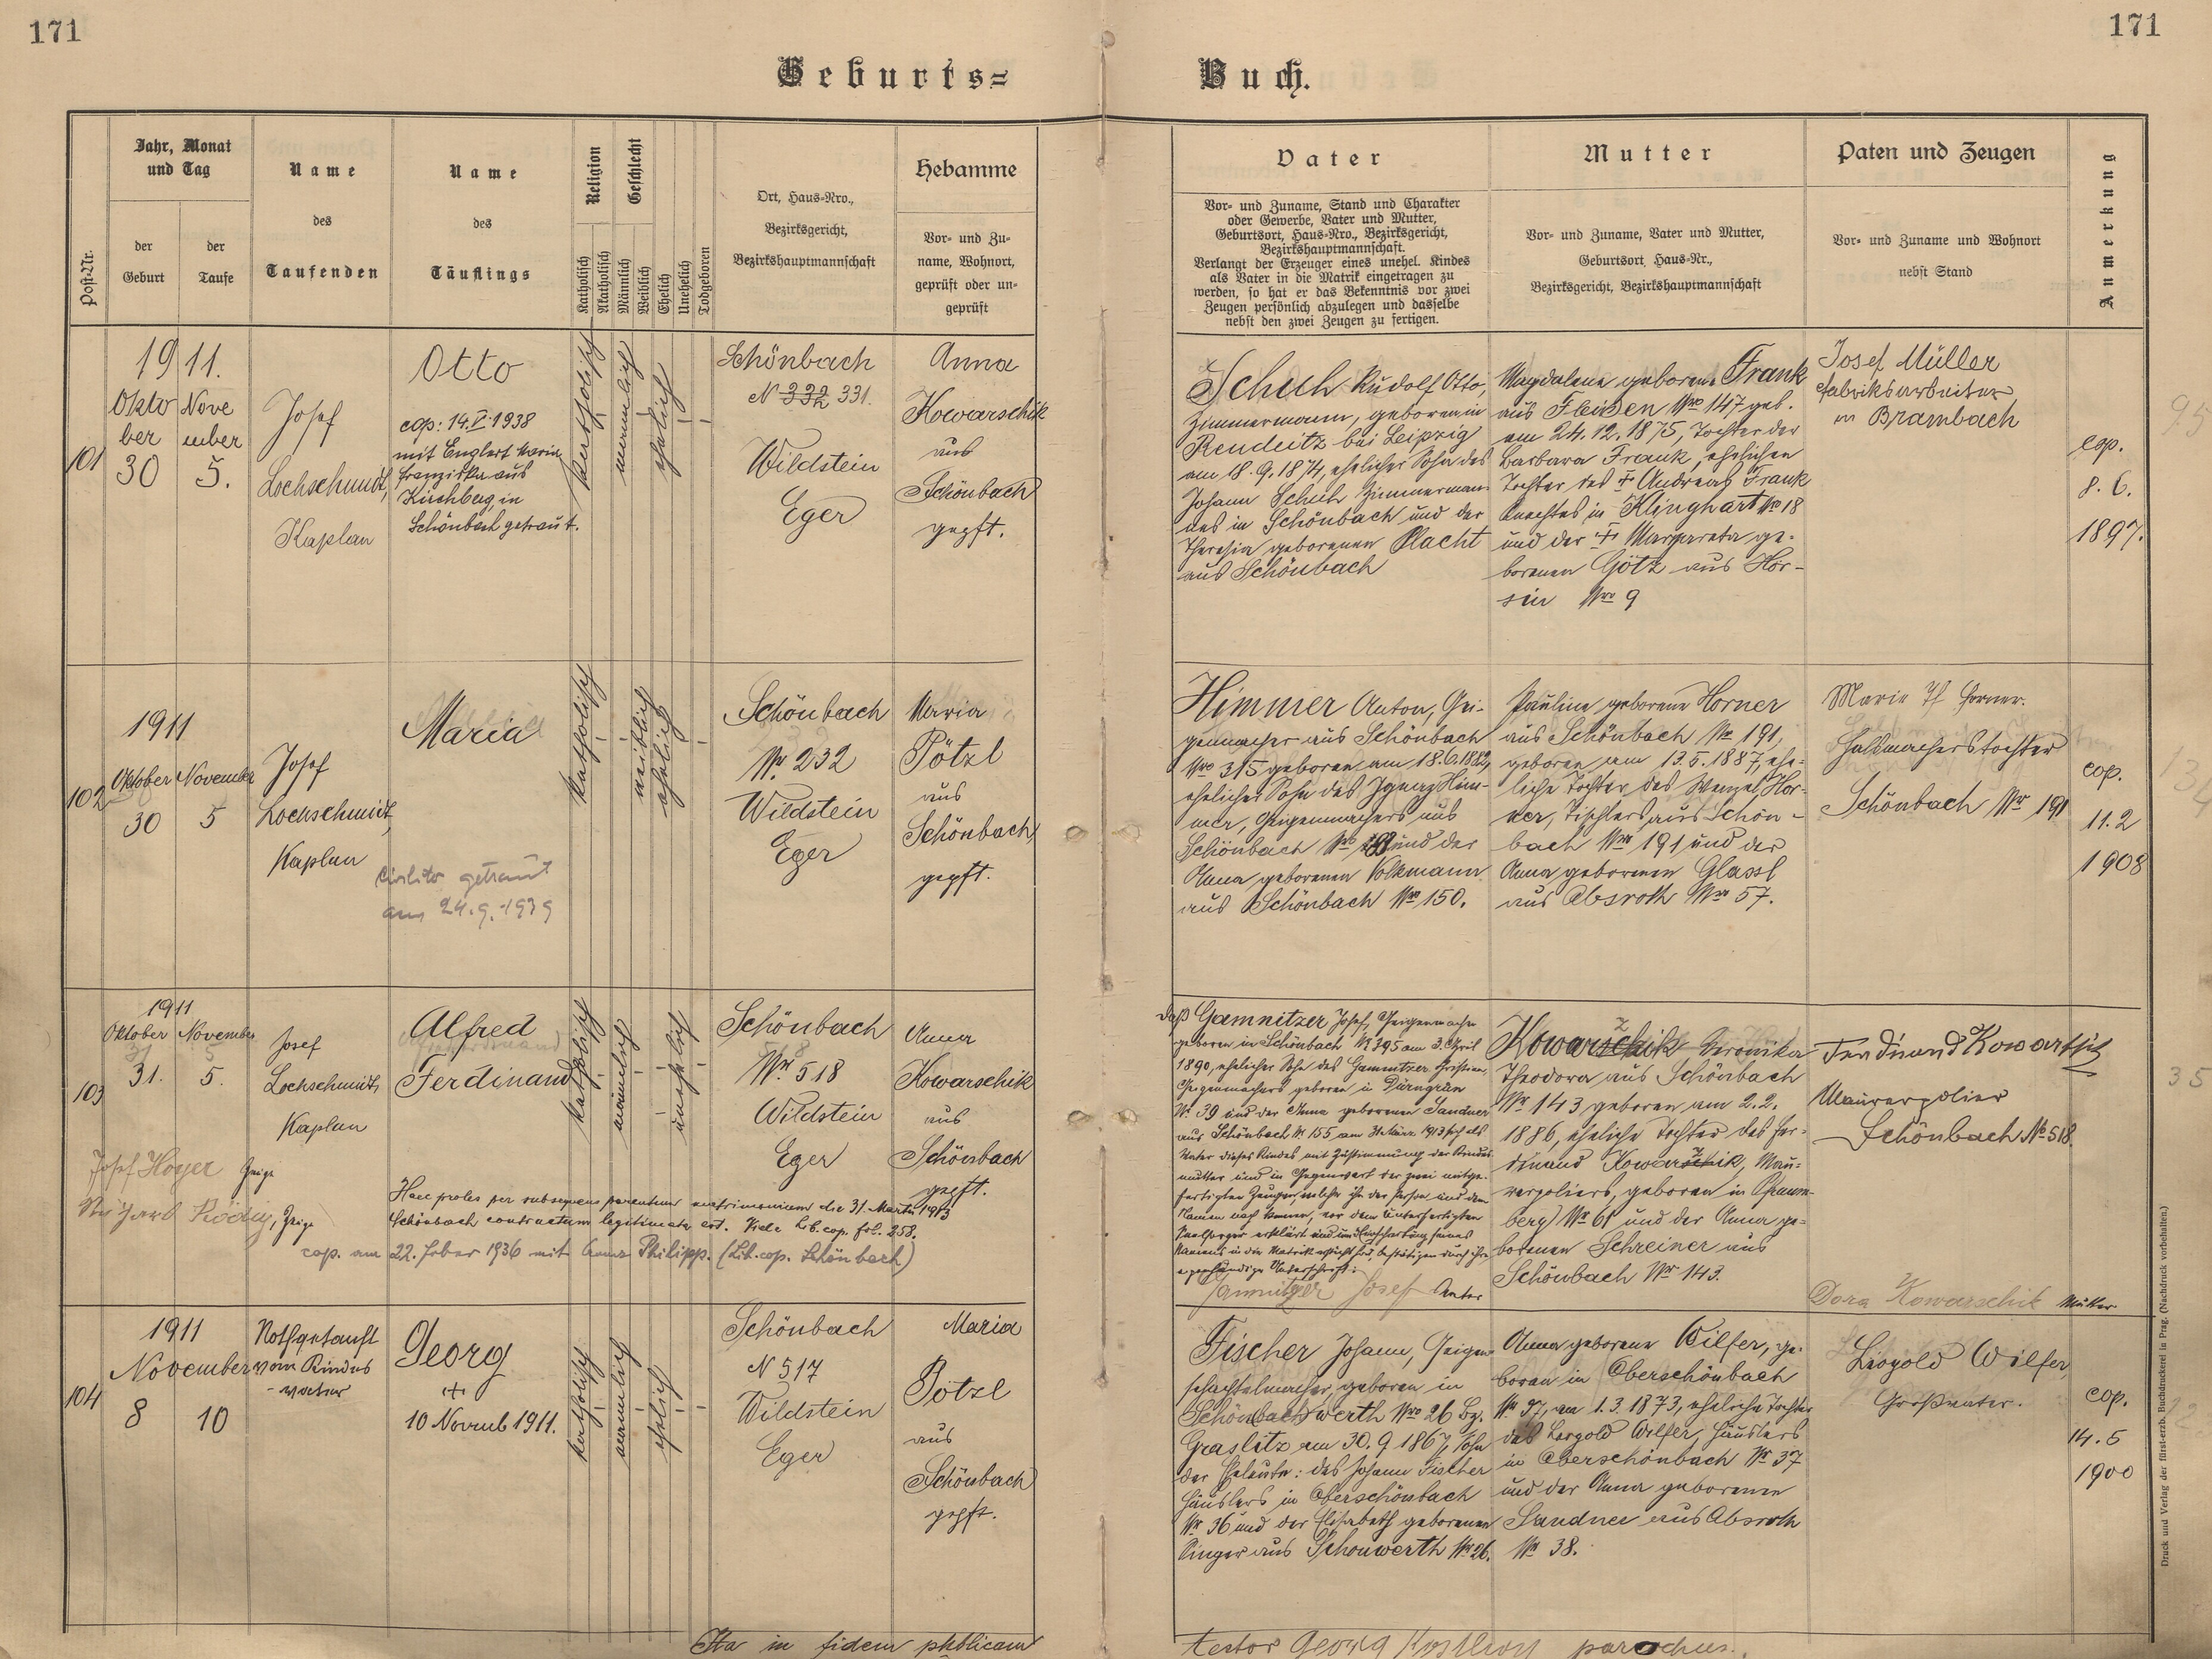 171
171
Geburts=
Buch.
Post-Nr.
Jahr, Monat
und Tag
der
Geburt
der
Taufe
Name
des
Taufenden
Name
des
Täuflings
Religion
Katholisch
Akatholisch
Geschlecht
Männlich
Weiblich
Ehelich
Unehelich
Todgeboren
Ort, Haus-Nro.,
Bezirksgericht,
Bezirkshauptmannschaft
Hebamme
Vor- und Zu-
name, Wohnort,
geprüft oder un-
geprüft
Vater
Vor- und Zuname, Stand und Charakter
oder Gewerbe, Vater und Mutter,
Geburtsort, Haus-Nro., Bezirksgericht,
Bezirkshauptmannschaft.
Verlangt der Erzeuger eines unehel. Kindes
als Vater in die Matrik eingetragen zu
werden, so hat er das Bekenntnis vor zwei
Zeugen persönlich abzulegen und dasselbe
nebst den zwei Zeugen zu fertigen.
Mutter
Vor- und Zuname, Vater und Mutter,
Geburtsort, Haus-Nr.,
Bezirksgericht, Bezirkshauptmannschaft
Paten und Zeugen
Vor- und Zuname und Wohnort
nebst Stand
Anmerkung
101
1911.
Oktober
30
November
5.
Josef
Lochschmidt,
Kaplan
Otto
cop: 14.V.1938
mit Englert Maria
Franziska aus
Kirchberg in
Schönbach getraut.
katholisch
männlich
ehelich
Schönbach
N 332 331.
Wildstein
Eger
Anna
Kowarschik
aus
Schönbach
gepft.
Schuh Rudolf Otto,
Zimmermann, geboren in
Reudnitz bei Leipzig
am 18.9.1874, ehelicher Sohn des
Johann Schuh Zimmerman-
nes in Schönbach und der
Theresia geborenen Placht
aus Schönbach
Magdalena geborene Frank
aus Fleißen Nro 147 geb.
am 24.12.1875, Tochter der
Barbara Frank, ehelichen
Tochter des † Andreas Frank
Knechtes in Klinghart Nro 18
und der † Margareta ge-
borenen Götz aus Hör-
sin Nro 9
Josef Müller
Fabriksarbeiter
in Brambach
cop.
8.6.
1897.
95
102
1911
Oktober
30
November
5
Josef
Lochschmidt,
Kaplan
Maria
Civiliter getraut
am 24.9.1939
katholisch
weiblich
ehelich
Schönbach
Nr. 232
Wildstein
Eger
Maria
Pötzl
aus
Schönbach,
gepft.
Himmer Anton, Gei-
genmacher aus Schönbach
Nro 315 geboren am 18.6.1882,
ehelicher Sohn des Ignaz Him-
mer, Geigenmachers aus
Schönbach Nro und der
Anna geborenen Volkmann
aus Schönbach Nro 150.
Pauline geborene Horner
aus Schönbach Nro 191,
geboren am 13.5.1887, ehe-
liche Tochter des Wenzel Hor-
ner, Tischlers aus Schön-
bach Nro 191 und der
Anna geborenen Glassl
aus Absroth Nro 57.
Marie Horner.
Schönbach Nr 191
cop.
11.2
1908
134
103
1911
Oktober
31.
November
5.
Josef
Lochschmidt,
Kaplan
Alfred
Ferdinand
katholisch
männlich
unehelich
Schönbach
Nr. 518
Wildstein
Eger
Anna
Kowarschik
aus
Schönbach
gepft.
Josef Hoyer Zeuge
Rödig, Zeuge
Haec proles per subsequens parentum matrimonium die 31. Martii 1913
Schönbach contractum legitimata est. Vide Lib. cop. fol. 258.
cop. am 22. Feber 1936 mit Anna Philipp. (Lib. cop. Schönbach)
daß Gamnitzer Josef, Geigenmacher
geboren in Schönbach Nr 395 am 3. April
1890, ehelicher Sohn des Gamnitzer Christian,
Geigenmachers geboren in Dürngrün
Nr. 39 und der Anna geborenen Sandner
aus Schönbach Nr 155 am 31. März 1913 sich als
Vater dieses Kindes mit Zustimmung der Kindes-
mutter und in Gegenwart der zwei mitge-
fertigten Zeugen, welche ihn der Person und dem
Namen nach kennen, vor dem Unterfertigten
Seelsorger erklärt und um Einschaltung seines
Namens in die Matrik ersucht hat, bestätigen durch ihre
eigenhändige Unterschrift:
Gamnitzer Josef Vater
Kowarschik Veronika
Theodora aus Schönbach
Nr 143 geboren am 2.2.
1886, eheliche Tochter des Fer-
dinand Kowarschik, Mau-
rerpoliers, geboren in
Nr 61 und der Anna ge-
borenen Schreiner aus
Schönbach Nr 143.
Ferdinand Kowartschik
Maurerpolier
Schönbach No 518
Dora Kowarschik Mutter
35
104
1911
November
8
10
Nothgetauft
vom Kindes-
vater
Georg
+
10 Novemb 1911.
katholisch
männlich
ehelich
Schönbach
N 517
Wildstein
Eger
Maria
Pötzl
aus
Schönbach
gepft.
Fischer Johann, Geigen-
schachtelmacher, geboren in
Schönwerth Nro 26 Bz.
Graslitz am 30.9.1867, Sohn
der Eheleute: des Johann Fischer
Häuslers in Oberschönbach
Nr 36 und der Elisabeth geborenen
Singer aus Schönwerth Nr 26.
Anna geborene Wilfer, ge-
boren in Oberschönbach
Nr 37, am 1.3.1873, eheliche Tochter
des Leopold Wilfer, Häuslers
in Oberschönbach Nr 37
und der Anna geborenen
Sandner aus Absroth
Nr 38.
Leopold Wilfer,
Großvater.
cop.
14.5
1900
Ita in fidem publicam
testor Georg parochus.
Druck und Verlag der fürst-erzb. Buchdruckerei in Prag. (Nachdruck vorbehalten.)